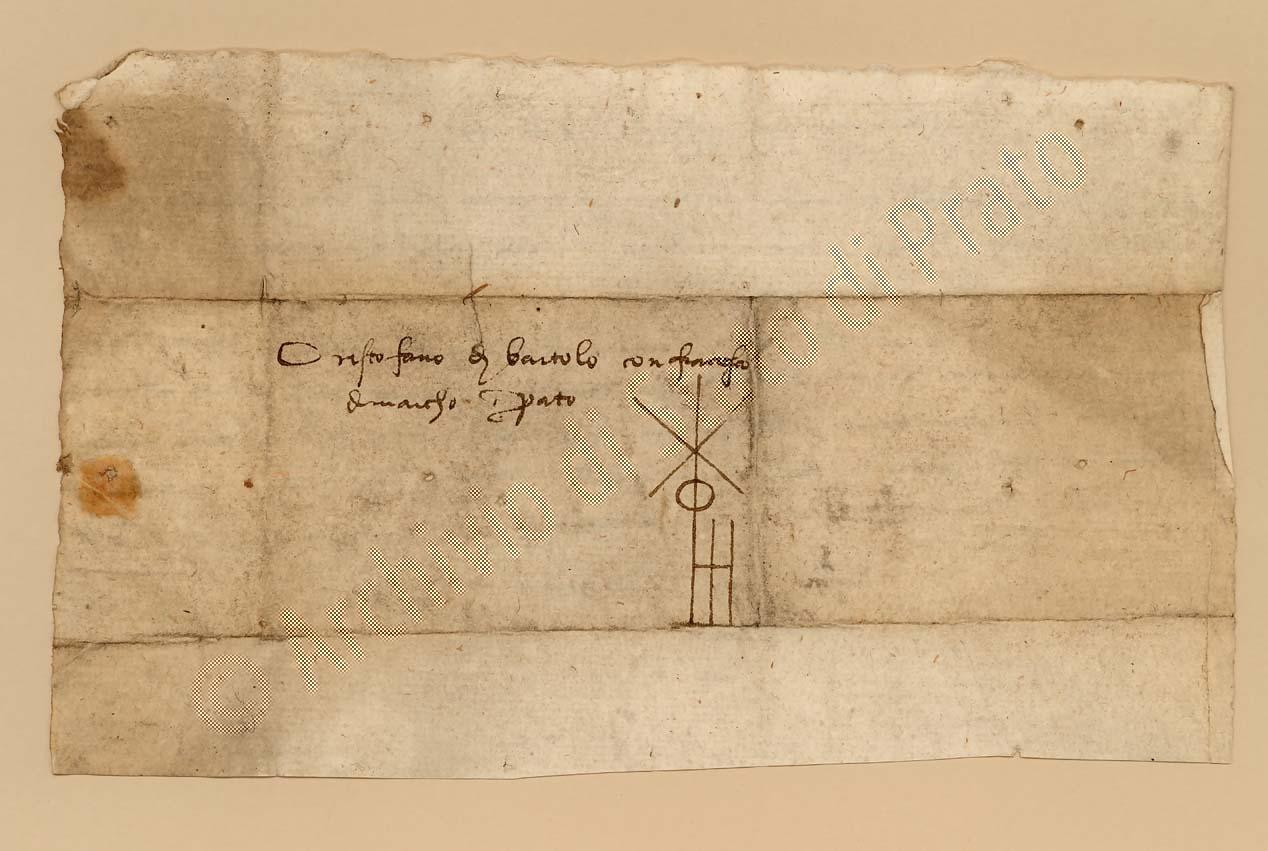 Cristofano di bartolo con franc.scho
di marcho da prato
© Archivio di Stato di Prato